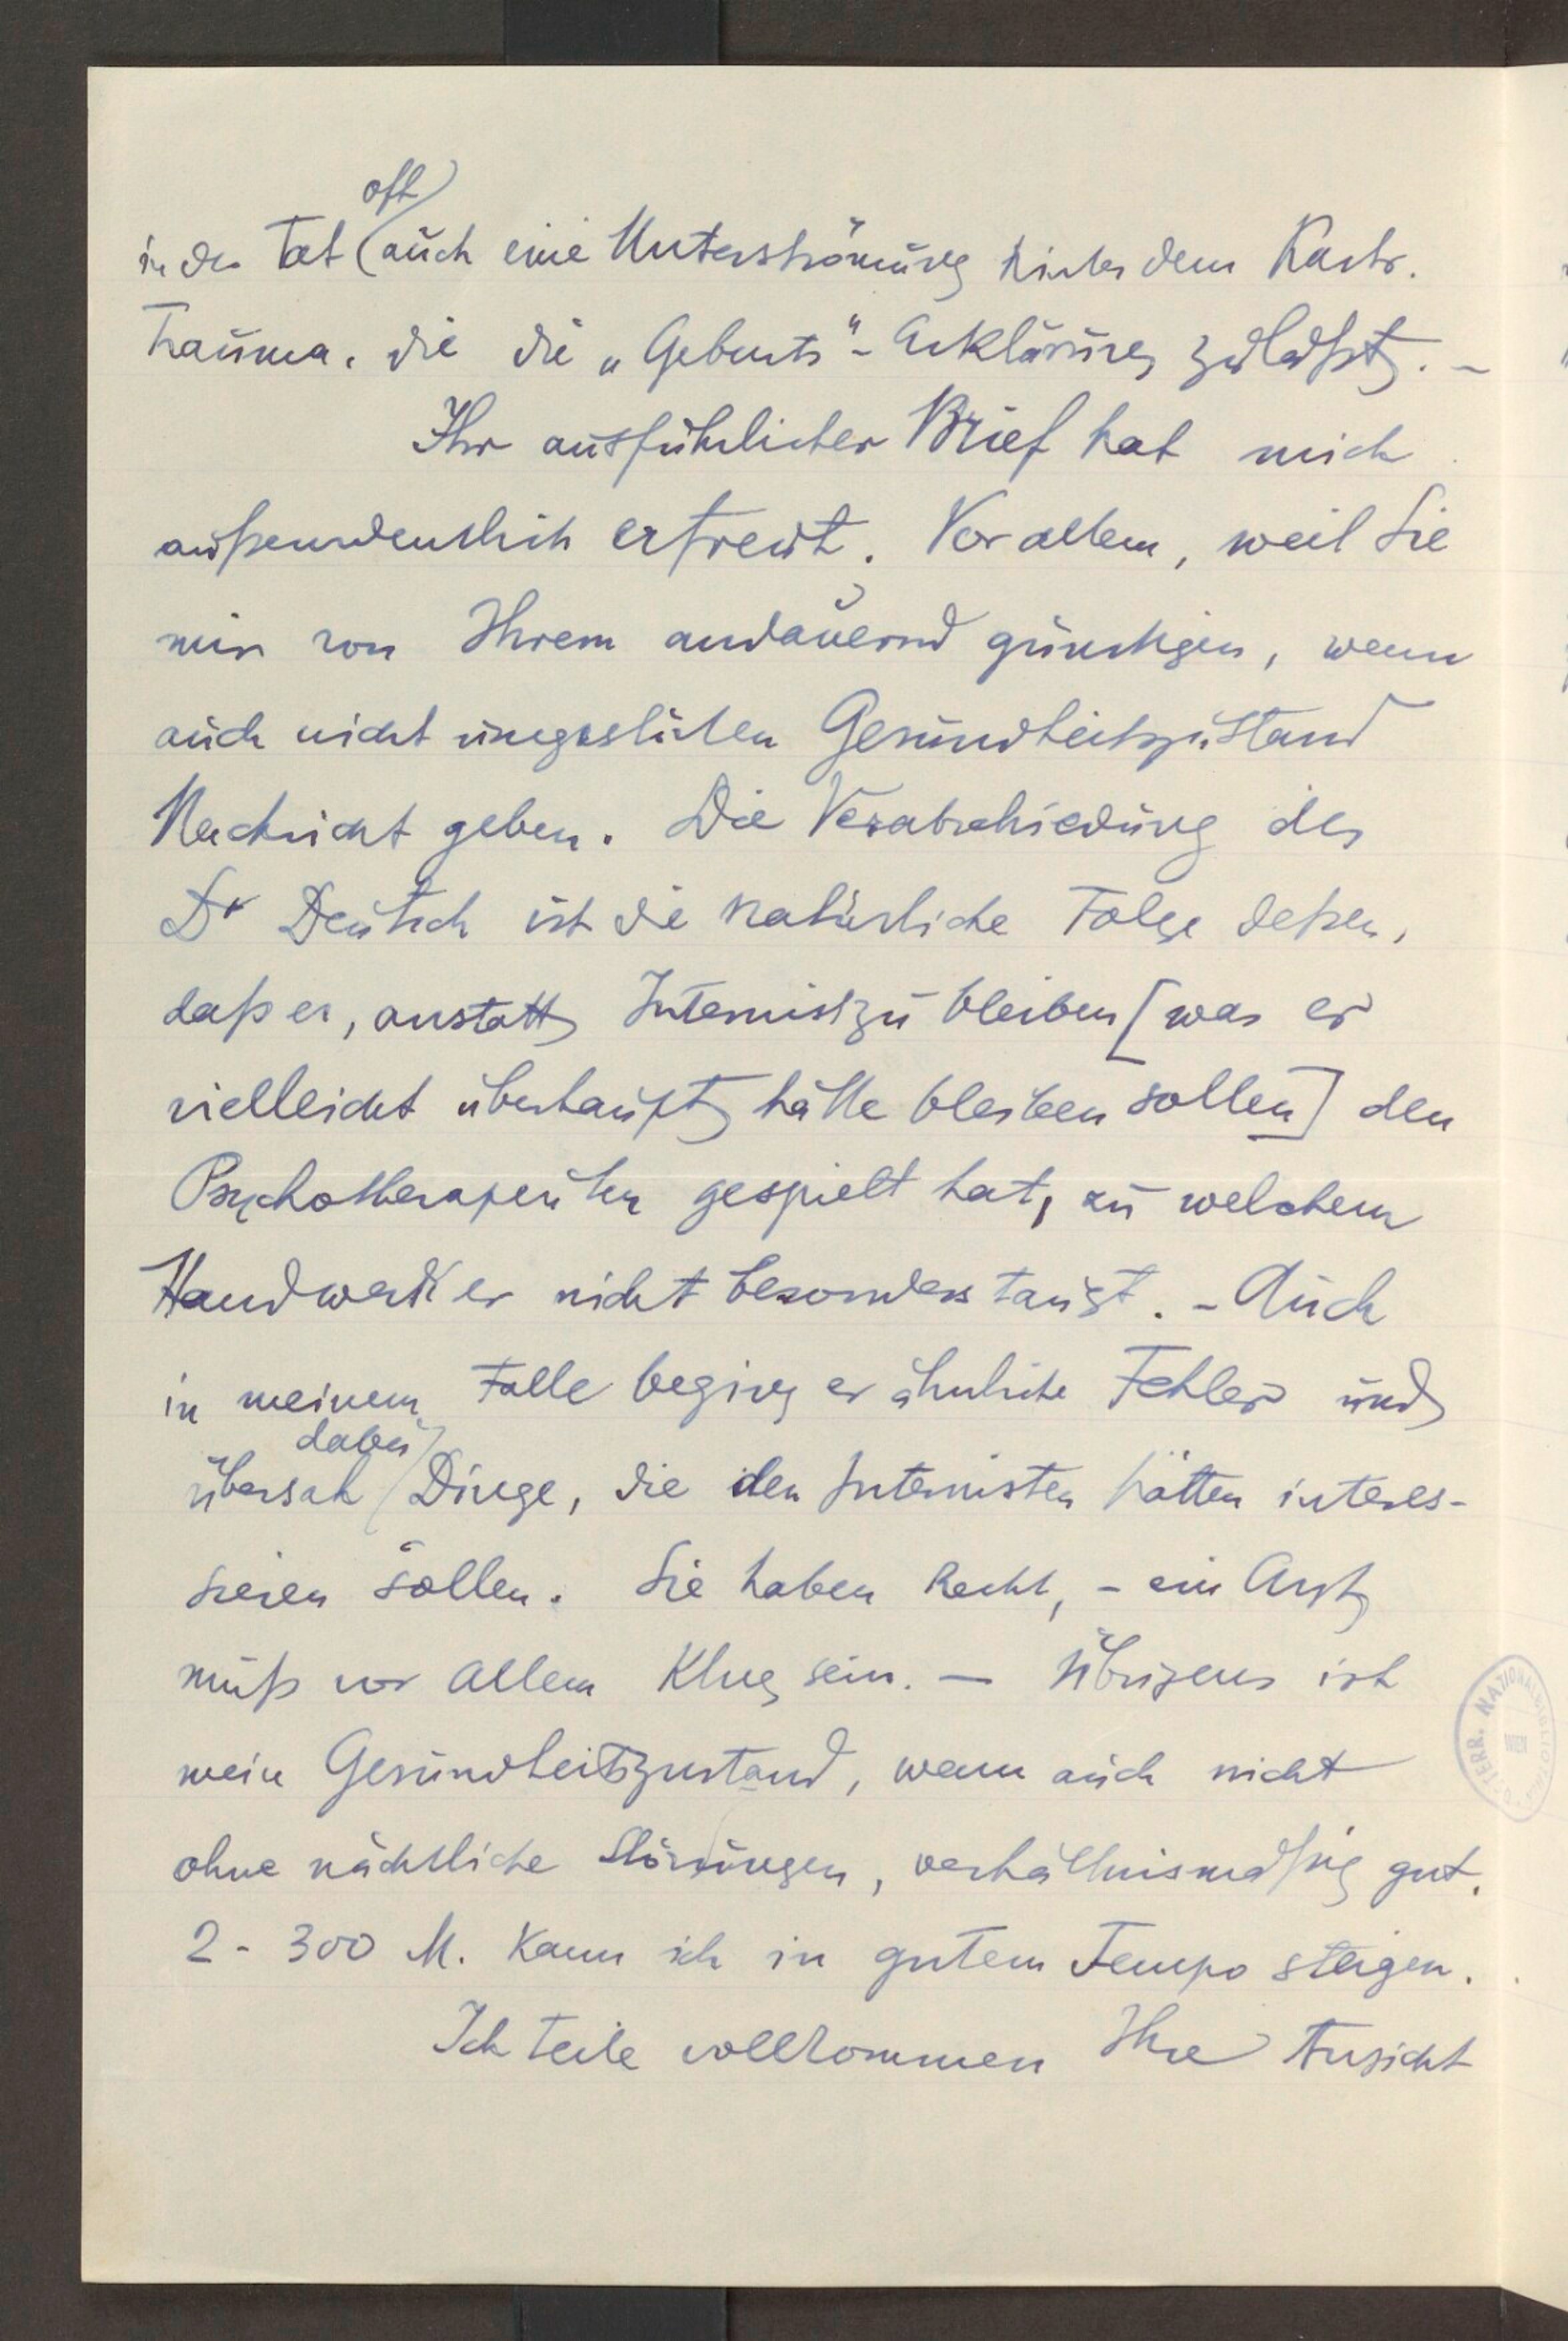 oft
in der Tat auch eine Unterströmung hinter dem Kastr.
Trauma, die die „Geburts"-Erklärung zuläßt. –
Ihr ausführlicher Brief hat mich
außerordentlich erfreut. Vor allem, weil Sie
mir von Ihrem andauernd günstigen, wenn
auch nicht Gesundheitszustand
Nachricht geben. Die Verabschiedung des
Dr Deutsch ist die natürliche Folge deßen,
daß er, anstatt Internist zu bleiben [was er
vielleicht überhaupt hätte bleiben sollen] den
Psychotherapeuten gespielt hat, zu welchem
Handwerk er nicht besonders taugt. – Auch
in meinem Falle beging er ähnliche Fehler und
dabei
übersah Dinge, die den Internisten hätten interes-
sieren sollen. Sie haben Recht, – ein Arzt
muß vor allem klug sein. – Übrigens ist
mein Gesundheitszustand, wenn auch nicht
ohne nächtliche Störungen, verhältnismäßig gut.
2 - 300 M. kann ich in gutem Tempo steigen.
Ich teile vollkommen Ihre Ansicht
ÖSTERR. NATIONALBIBLIOTHEK
WIEN